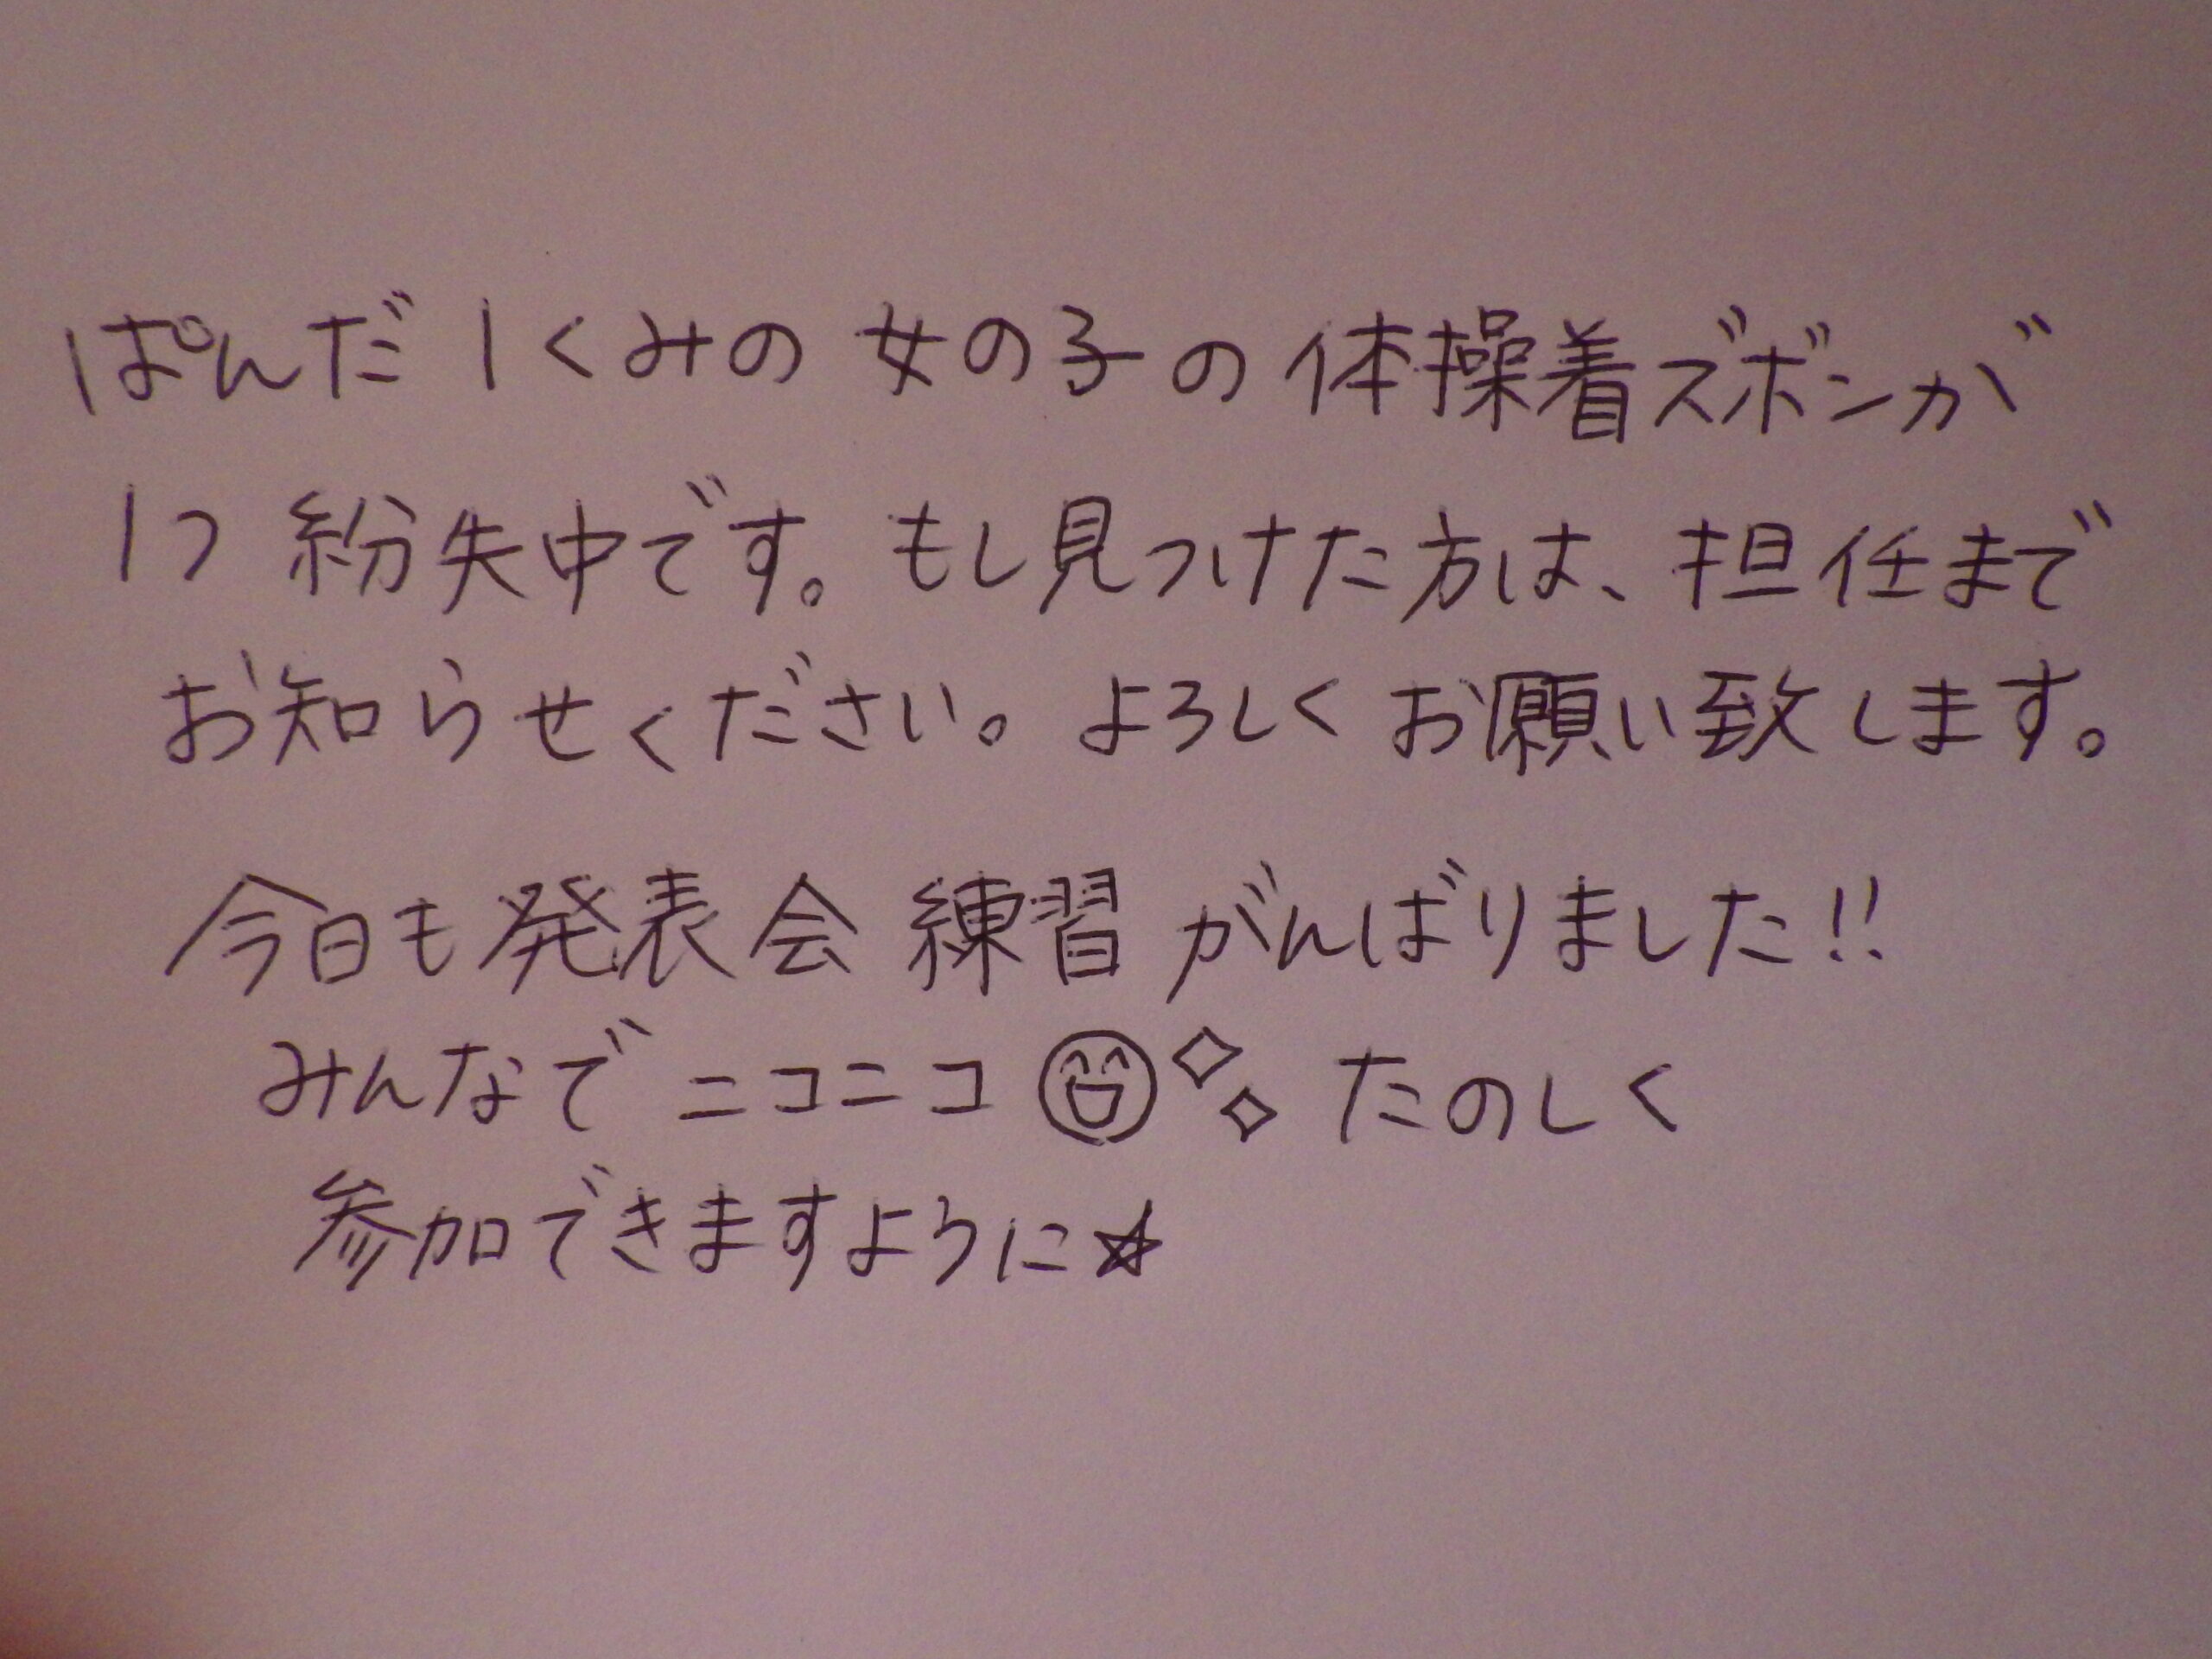 ぱんだ1くみの女の子の体操着ズボンが
1つ紛失中です。もし見つけた方は、担任まで
お知らせください。よろしくお願い致します。
今日も発表会練習がんばりました!!
みんなでニコニコ😄✧✧たのしく
参加できますように☆